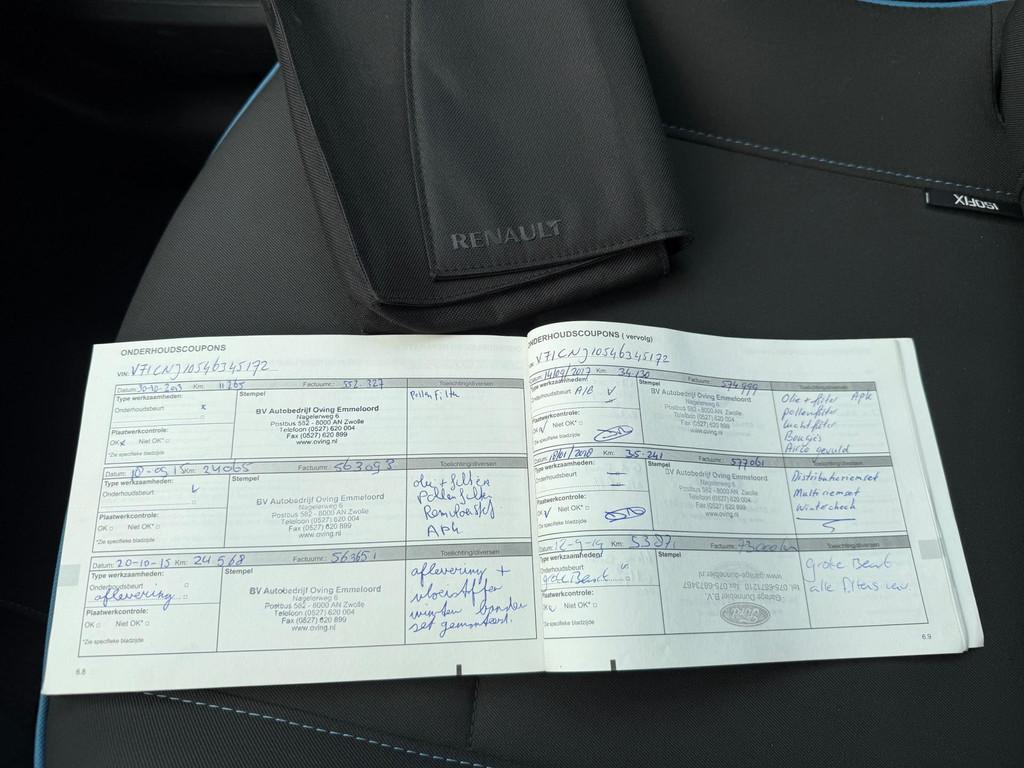 RENAULT
ISOFIX
ONDERHOUDSCOUPONS
VIN:
Datum: 30-10-2013 Km: 11265 Factuurnr.: 552.327 Toelichting/diversen
Type werkzaamheden:
Onderhoudsbeurt x
Plaatwerkcontrole:
OK Niet OK*
*Zie specifieke bladzijde
Stempel
BV Autobedrijf Oving Emmeloord
Nagelerweg 6
Postbus 582 - 8000 AN Zwolle
Telefoon (0527) 620 004
Fax (0527) 620 899
www.oving.nl
Pollen Filter
Km: 24065 Factuurnr.: 563093 Toelichting/diversen
Type werkzaamheden:
Onderhoudsbeurt
Plaatwerkcontrole:
OK Niet OK*
*Zie specifieke bladzijde
Stempel
BV Autobedrijf Oving Emmeloord
Nagelerweg 6
Postbus 582 - 8000 AN Zwolle
Telefoon (0527) 620 004
Fax (0527) 620 899
www.oving.nl
olie + filter
Pollen filter
Remvloeistof
APK
Datum: 20-10-15 Km: 24568 Factuurnr.: 563651 Toelichting/diversen
Type werkzaamheden:
Onderhoudsbeurt
aflevering
Plaatwerkcontrole:
OK Niet OK*
*Zie specifieke bladzijde
Stempel
BV Autobedrijf Oving Emmeloord
Nagelerweg 6
Postbus 582 - 8000 AN Zwolle
Telefoon (0527) 620 004
Fax (0527) 620 899
www.oving.nl
aflevering +
vloeistoffen
winter banden
set gemonteerd.
6.8
ONDERHOUDSCOUPONS ( vervolg)
VIN:
Datum: 14/09/2017 Km: 34.130 Factuurnr.: 574999 Toelichting/diversen
Type werkzaamheden:
Onderhoudsbeurt A/B
Plaatwerkcontrole:
OK Niet OK*
*Zie specifieke bladzijde
Stempel
BV Autobedrijf Oving Emmeloord
Nagelerweg 6
Postbus 582 - 8000 AN Zwolle
Telefoon (0527) 620 004
Fax (0527) 620 899
www.oving.nl
Olie + filter APK
pollenfilter
luchtfilter
Bougies
Airco gevuld
Datum: 18/01/2018 Km: 35.241 Factuurnr.: 577061 Toelichting/diversen
Type werkzaamheden:
Onderhoudsbeurt
Plaatwerkcontrole:
OK Niet OK*
*Zie specifieke bladzijde
Stempel
BV Autobedrijf Oving Emmeloord
Nagelerweg 6
Postbus 582 - 8000 AN Zwolle
Telefoon (0527) 620 004
Fax (0527) 620 899
www.oving.nl
Distributieriemset
Multiriemset
Wintercheck
Datum: 12-9-19 Km: Factuurnr.: Toelichting/diversen
Type werkzaamheden:
Onderhoudsbeurt
grote Beurt
Plaatwerkcontrole:
OK Niet OK*
*Zie specifieke bladzijde
Stempel
Ford
grote Beurt
alle filters
6.9